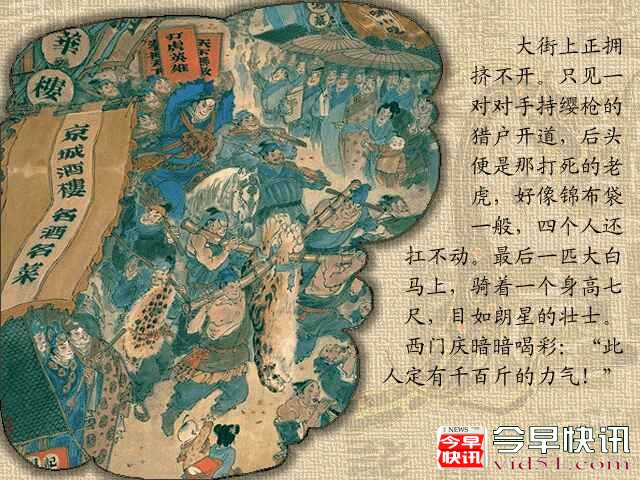 大街上正拥
挤不开。只见一
对对手持缨枪的
猎户开道，后头
便是那打死的老
虎，好像锦布袋
一般，四个人还
扛不动。最后一匹大白
马上，骑着一个身高七
尺，目如朗星的壮士。
西门庆暗暗喝彩：“此
人定有千百斤的力气！”
華
樓
打虎英雄
京城酒樓
名酒名菜
NEWS
今早
快讯
今早快讯
vid51.com